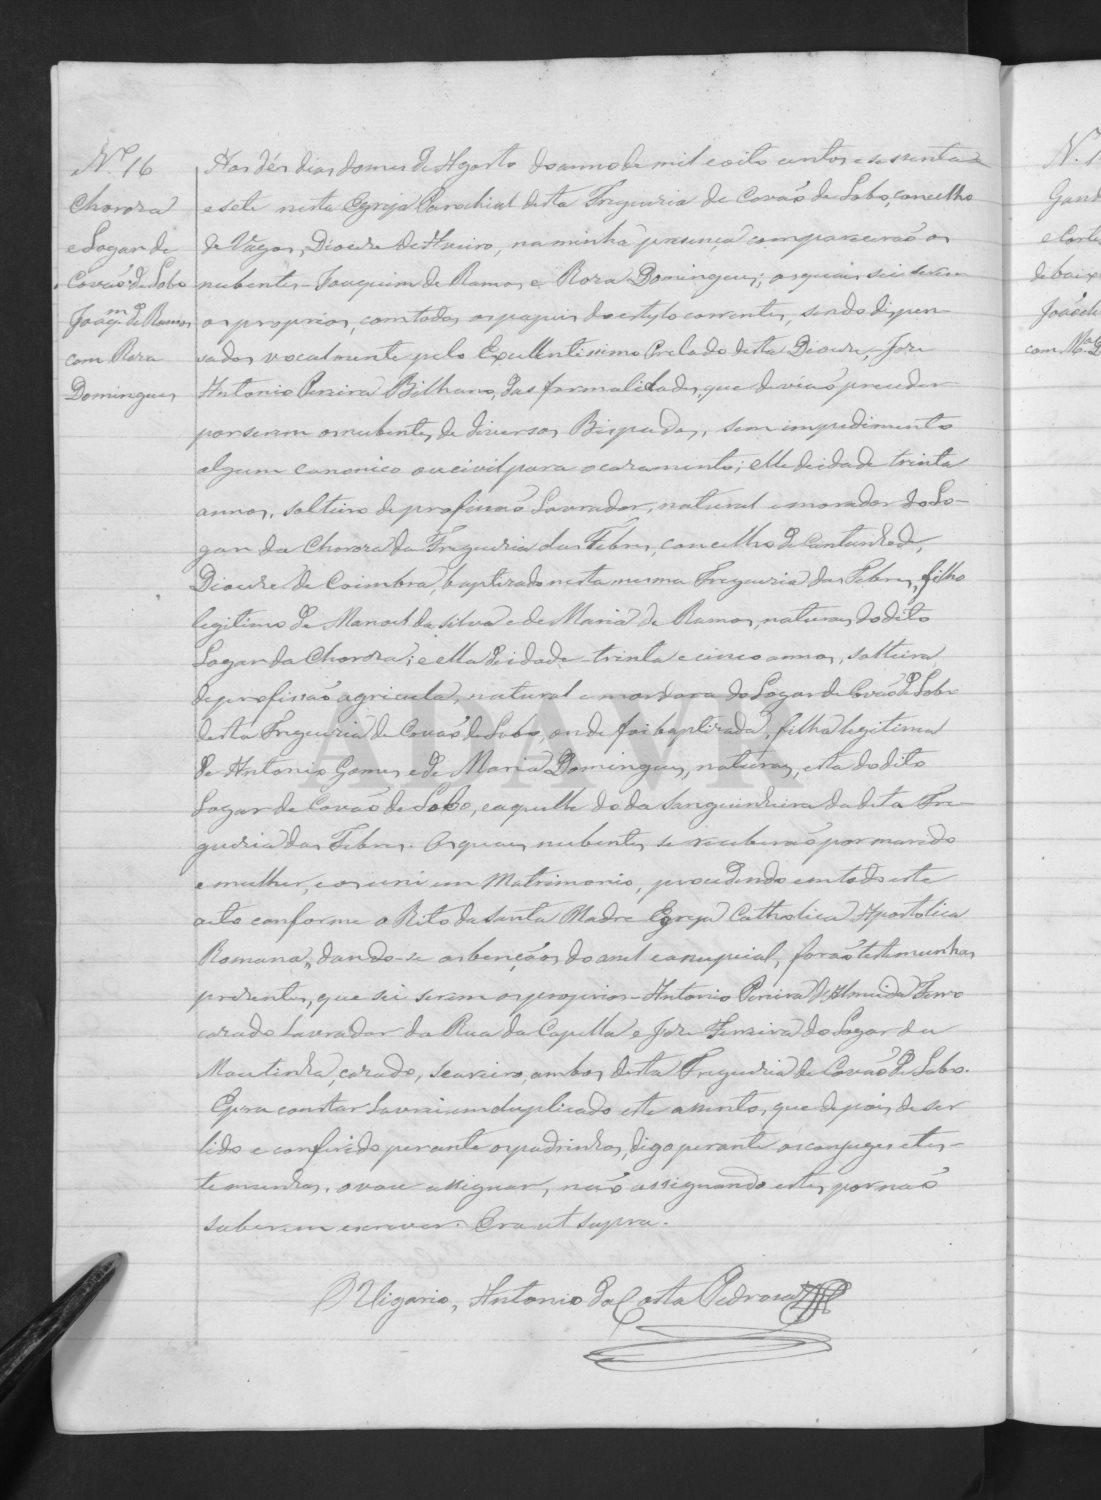 Nº 16
Chorosa
e Logar de
Covão de Lobo
Joaqm de Ramos
com Rosa
Domingues
Aos dés dias do mes de Agosto do anno de mil e oito centos e sessenta
e sete nesta Egreja Parochial desta Freguesia de Covão de Lobo, concelho
de Vagos, Diocese de Aveiro, na minha presença comparecerão os
nubentes Joaquim de Ramos e Rosa Domingues; os quais sei serem
os proprios, com todos os papeis do estylo correntes, sendo dispen-
sados vocalmente pelo Excellentissimo Prelado desta Diocese, José
Antonio Pereira Bilhano, das formalidades, que devião preceder
por serem os nubentes de diversos Bispados, sem impedimento
algum canonico ou civil para o casamento; elle de idade trinta
annos, solteiro de profissão Lavrador, natural e morador do Lo-
gar da Chorosa da Freguesia das Febres, concelho de Cantanhede,
Diocese de Coimbra, baptizado nesta mesma Freguesia das Febres, filho
legitimo de Manoel da Silva e de Maria de Ramos, naturaes do dito
Logar da Chorosa; e ella de idade trinta e cinco annos, solteira,
de profissão agricula, natural e moradora do Logar de Covão de Lobo
desta Freguesia de Covão de Lobo, onde foi baptizada, filha legitima
de Antonio Gomes e de Maria Domingues, naturaes, esta do dito
Logar de Covão de Lobo, e aquelle do da Sanguinheira da dita Fre-
guesia das Febres. Os quaes nubentes se receberão por marido
e mulher, e os uni em Matrimonio, procedendo em todo este
acto conforme o Rito da Santa Madre Egreja Catholica Apostolica
Romana, dando-se as benções do anel e a nupcial, forão testemunhas
presentes, que sei serem os proprios Antonio Pereira de Almeida
casado Lavrador da Rua da Capella e José Ferreira do Logar da
Mautinha, casado, seareiro, ambos desta Freguesia de Covão de Lobo.
E para constar lavrei em duplicado este assento, que depois de ser
lido e conferido perante os padrinhos, digo perante os conjuges e tes-
temunhas, o vou assignar, não assignando estes por não
saberem escrever. Era ut supra.
O Vigario, Antonio da Costa Pedrosa
ADAVR
Nº 1
Gand
João